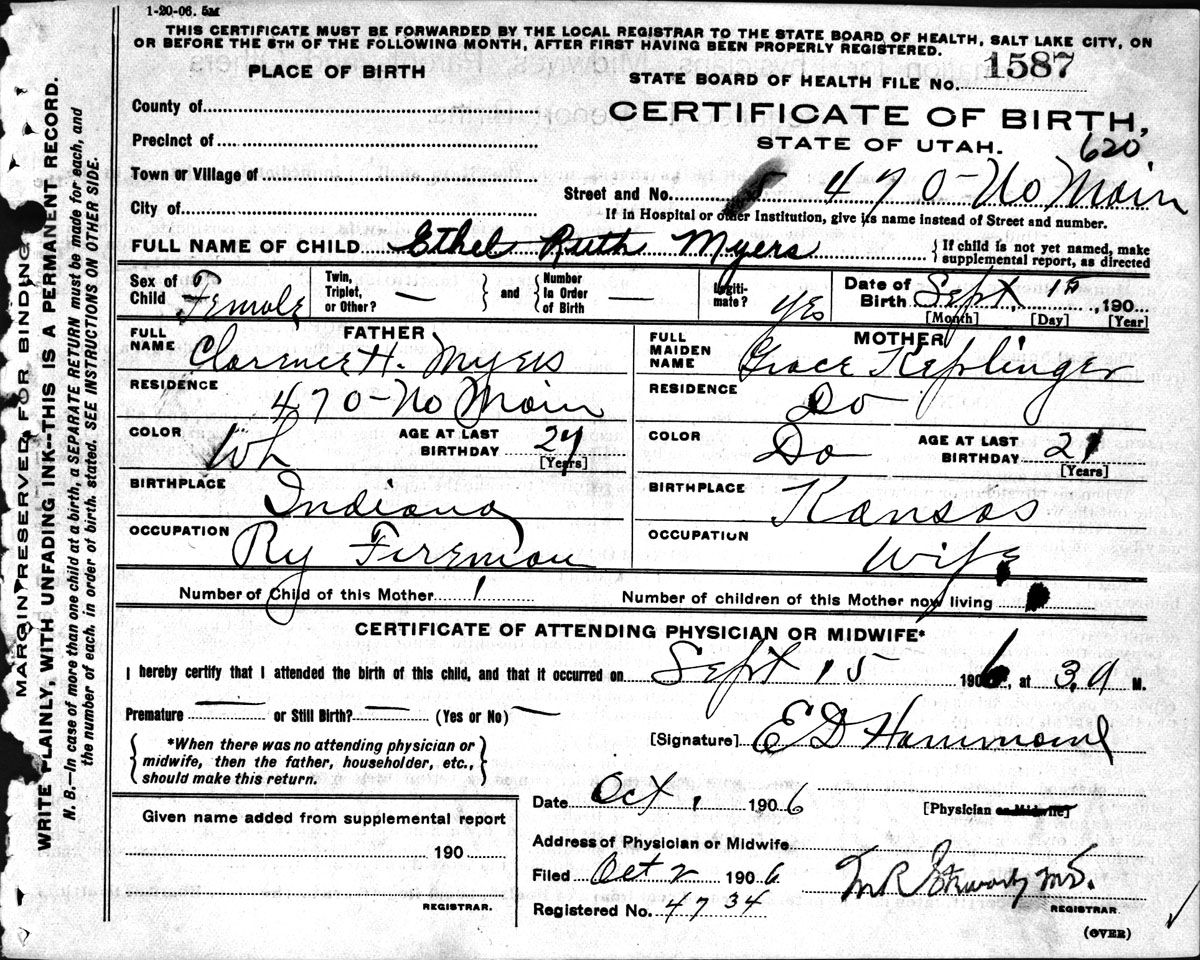 1-20-06. 5M
THIS CERTIFICATE MUST BE FORWARDED BY THE LOCAL REGISTRAR TO THE STATE BOARD OF HEALTH, SALT LAKE CITY, ON
OR BEFORE THE 5TH OF THE FOLLOWING MONTH, AFTER FIRST HAVING BEEN PROPERLY REGISTERED.
PLACE OF BIRTH
STATE BOARD OF HEALTH FILE NO. 1587
County of
CERTIFICATE OF BIRTH,
Precinct of
STATE OF UTAH.
620
Town or Village of
Street and No. 470-No Main
City of
If in Hospital or other Institution, give its name instead of Street and number.
FULL NAME OF CHILD Ethel Ruth Myers {If child is not yet named, make
supplemental report, as directed
Sex of Child Female
Twin, Triplet, or Other? — } and { Number In Order of Birth —
Legitimate? yes
Date of Birth Sept 15, 190
[Month] [Day] [Year]
FATHER
FULL NAME Clarence H. Myers
MOTHER
FULL MAIDEN NAME Grace Keplinger
RESIDENCE 470-No Main
RESIDENCE Do
COLOR Wh AGE AT LAST BIRTHDAY 27 [Years]
COLOR Do AGE AT LAST BIRTHDAY 21 [Years]
BIRTHPLACE Indiana
BIRTHPLACE Kansas
OCCUPATION Ry Fireman
OCCUPATION Wife
Number of Child of this Mother 1 Number of children of this Mother now living
CERTIFICATE OF ATTENDING PHYSICIAN OR MIDWIFE*
I hereby certify that I attended the birth of this child, and that it occurred on Sept 15 1906, at 3.a M.
Premature — or Still Birth? — (Yes or No) —
{*When there was no attending physician or
midwife, then the father, householder, etc.,
should make this return.}
[Signature] E D Hammond
Date Oct 1 1906
[Physician or Midwife]
Given name added from supplemental report
190
REGISTRAR.
Address of Physician or Midwife
Filed Oct 2 1906
M.D.
REGISTRAR.
Registered No. 4734
(OVER)
MARGIN RESERVED FOR BINDING
WRITE PLAINLY, WITH UNFADING INK--THIS IS A PERMANENT RECORD.
N. B.—In case of more than one child at a birth, a SEPARATE RETURN must be made for each, and
the number of each, in order of birth, stated. SEE INSTRUCTIONS ON OTHER SIDE.